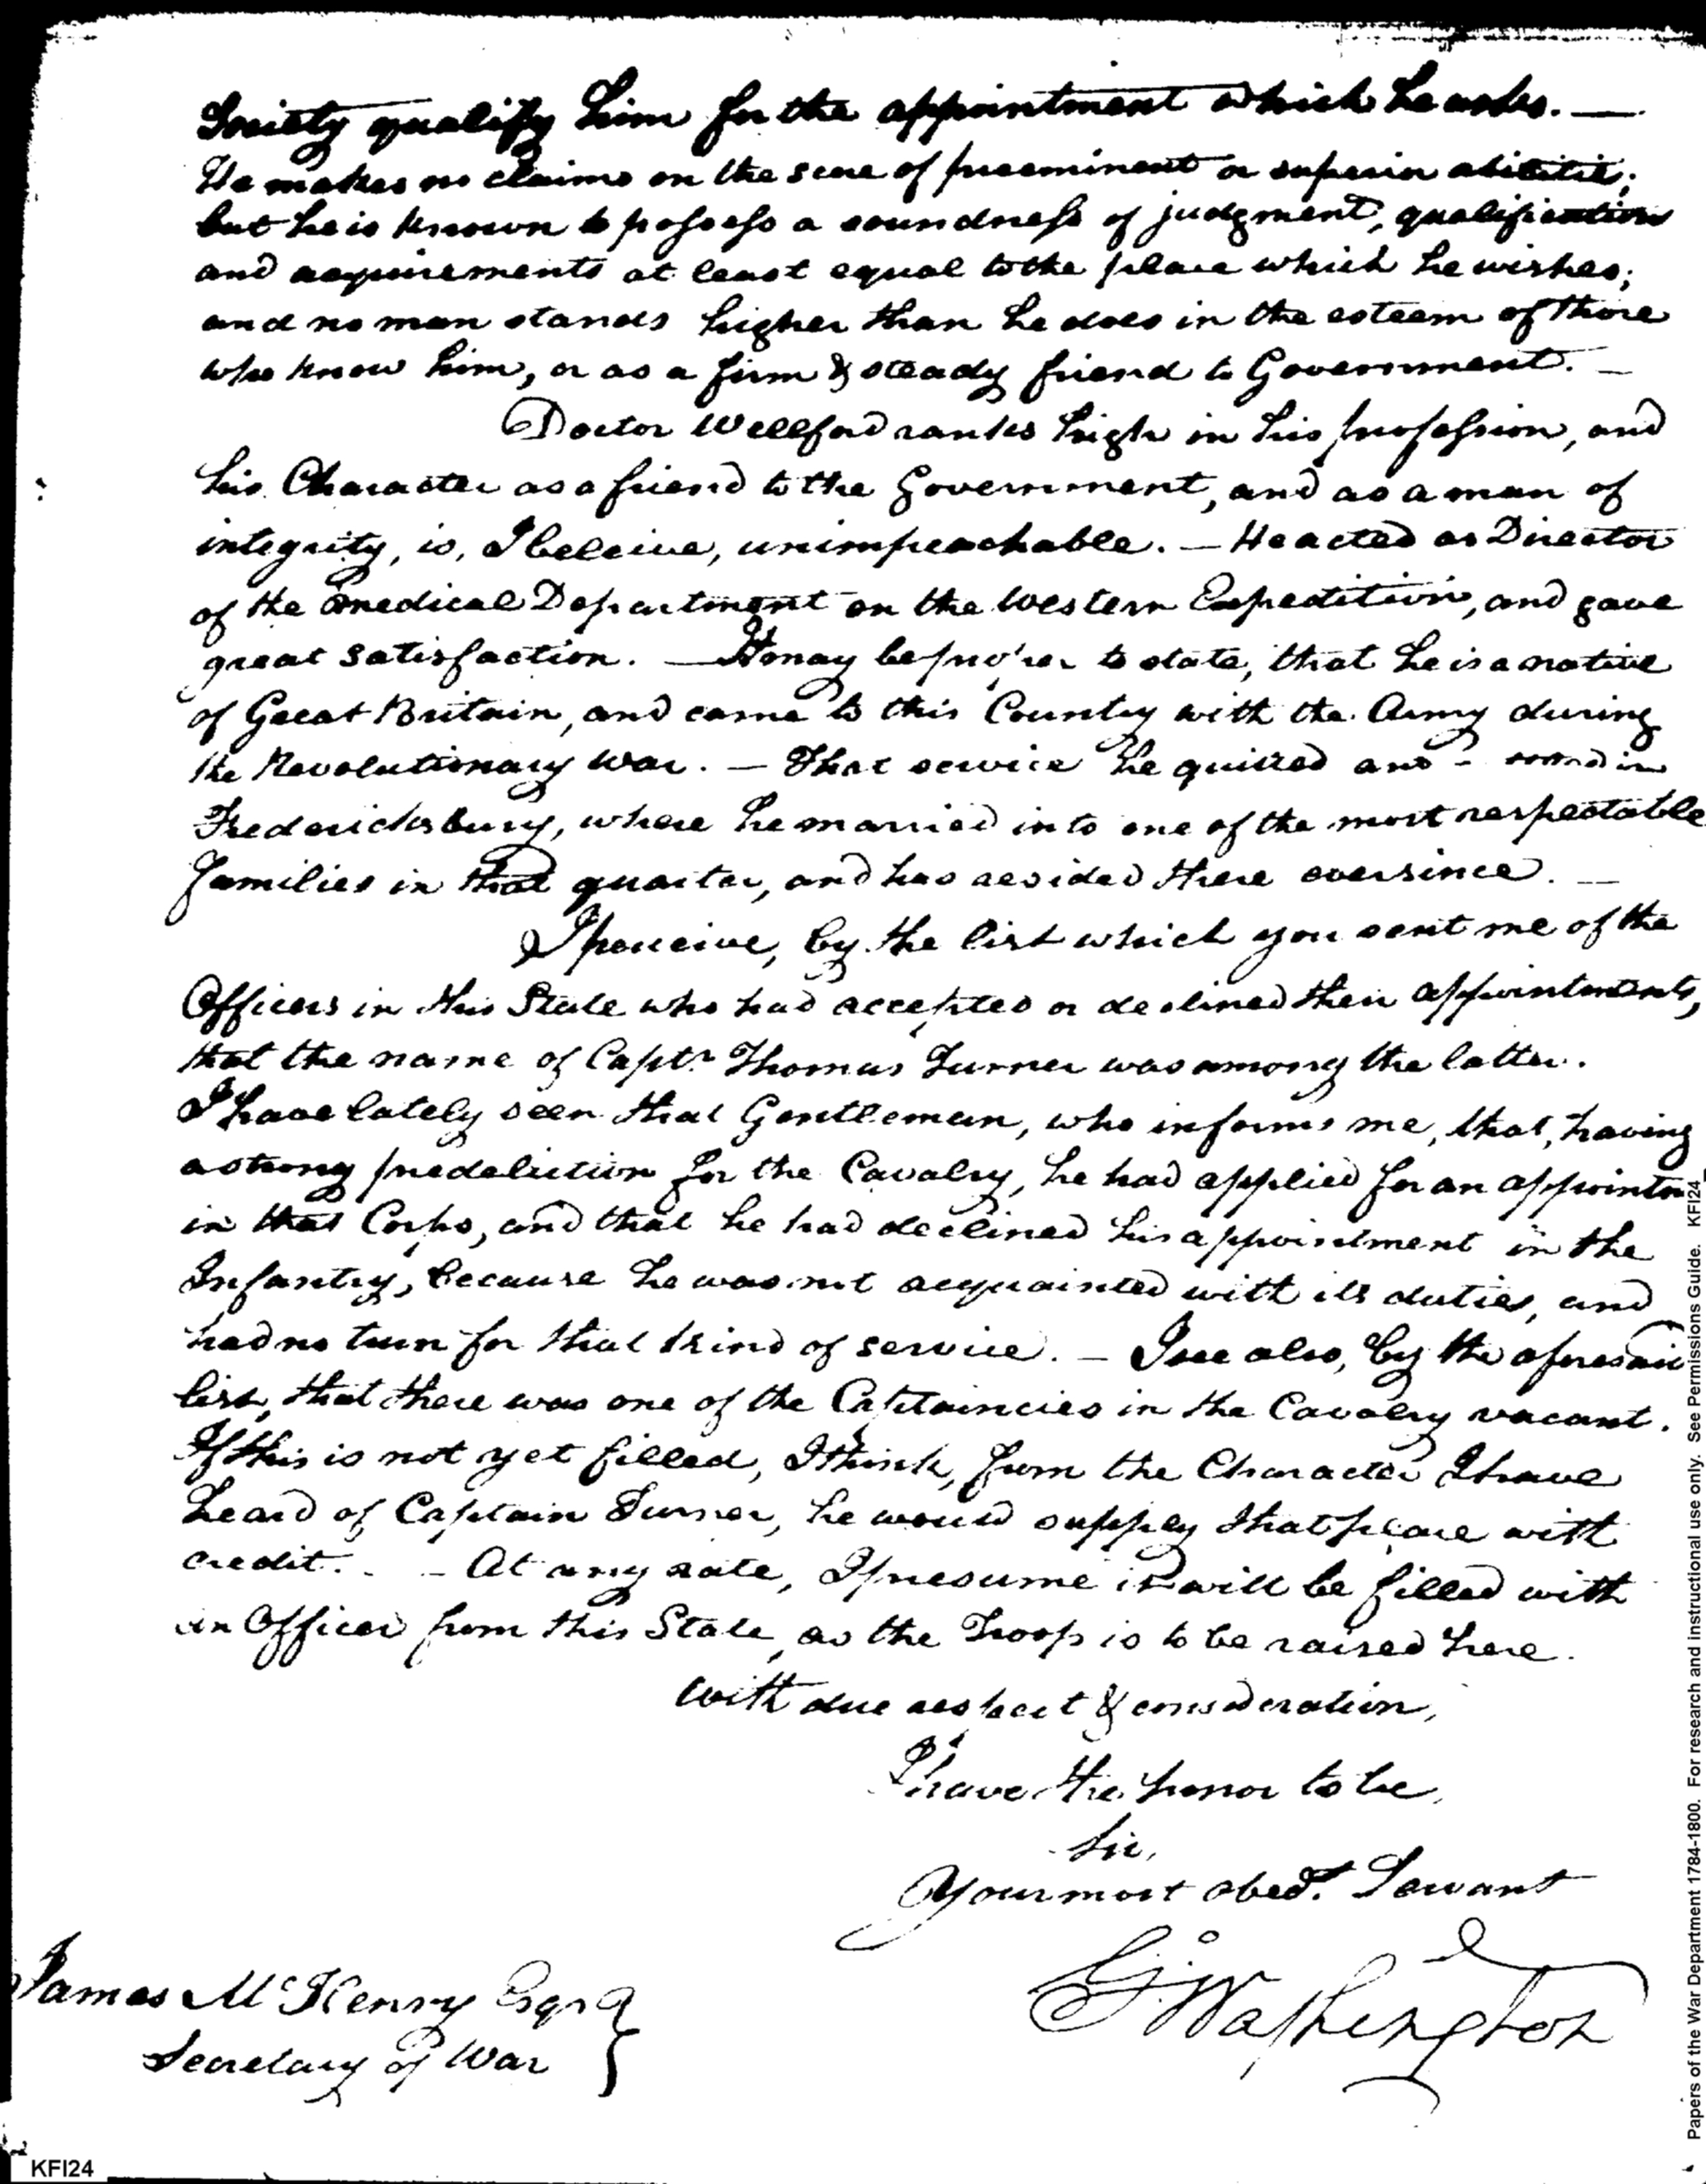 Society qualify him for the appointment which he asks. —
He makes no claims on the score of preeminent or superior abilities;
but he is known to possess a soundness of judgment, qualification
and acquirements at least equal to the place which he wishes;
and no man stands higher than he does in the esteem of those
who know him, or as a firm & steady friend to Government. —
Doctor Wellford ranks high in his profession, and
his Character as a friend to the Government, and as a man of
integrity, is, I beleive, unimpeachable. — He acted as Director
of the medical Department on the Western Expedition, and gave
great satisfaction. — It may be proper to state, that he is a native
of Great Britain, and came to this Country with the Army during
the Revolutionary war. — That service he quitted and in
Fredericksburg, where he married into one of the most respectable
families in that quarter, and has resided there ever since. —
I perceive, by the list which you sent me of the
Officers in this State who had accepted or declined their appointments,
that the name of Capt.ⁿ Thomas Turner was among the latter.
I have lately seen that Gentleman, who informs me, that, having
a strong predeliction for the Cavalry, he had applied for an appointm
in that Corps, and that he had declined his appointment in the
Infantry, because he was not acquainted with its duties, and
had no turn for that kind of service. — I see also, by the aforesaid
list, that there was one of the Captaincies in the Cavalry vacant.
If this is not yet filled, I think, from the Character I have
heard of Captain Turner, he would supply that place with
credit. — At any rate, I presume it will be filled with
an Officer from this State, as the Troop is to be raised here.
With due respect & consideration,
I have the honor to be,
Sir,
Your most obed.t Servant
G:o Washington
James McHenry Esqr.
Secretary of War }
KFI24
Papers of the War Department 1784-1800. For research and instructional use only. See Permissions Guide. KFI24